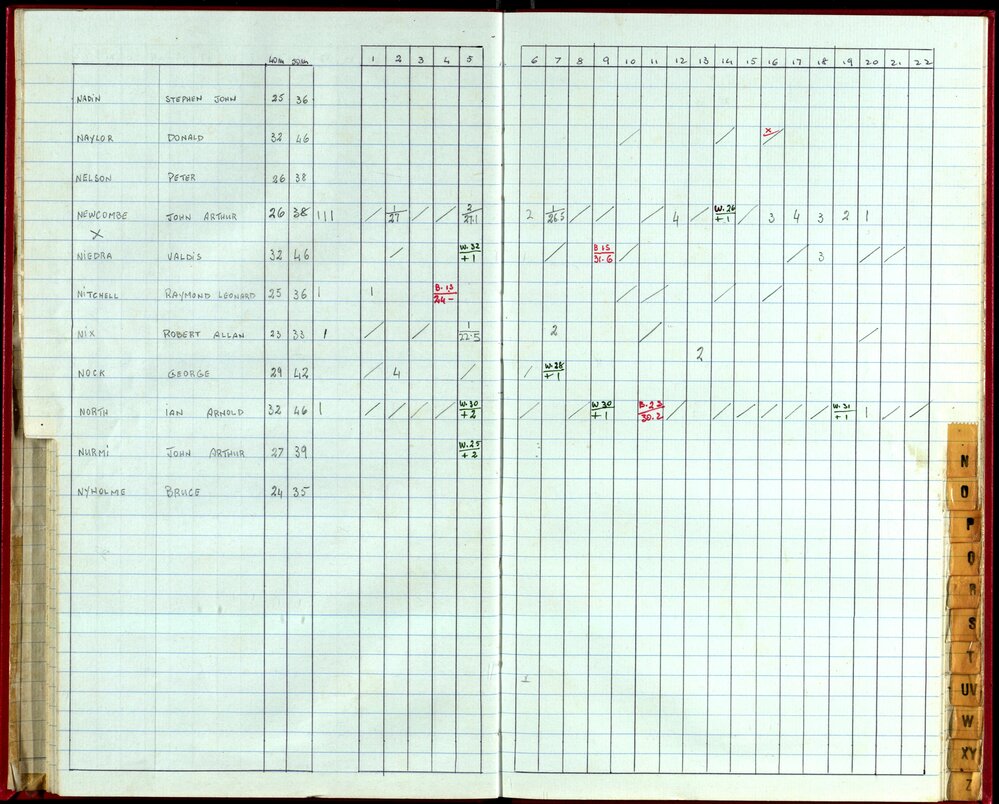 40m 50m 1 2 3 4 5 6 7 8 9 10 11 12 13 14 15 16 17 18 19 20 21 22
NADIN STEPHEN JOHN 25 36
NAYLOR DONALD 32 46 / / x/
NELSON PETER 26 38
NEWCOMBE JOHN ARTHUR 26 38 111 / 1/27 / / 2/27.1 2 1/26.5 / / / 4 / W.26/+1 / 3 4 3 2 1
X
NIEDRA VALDIS 32 46 / W.32/+1 / B.15/31.6 / / 3 / /
NITCHELL RAYMOND LEONARD 25 36 1 1 B.13/24- / / / /
NIX ROBERT ALLAN 23 33 1 / / 1/22.5 2 / /
2
NOCK GEORGE 29 42 / 4 / / W.28/+1
NORTH IAN ARNOLD 32 46 1 / / / / W.30/+2 / / W30/+1 / B.23/30.2 / / / / / / W.31/+1 1 / /
NURMI JOHN ARTHUR 27 39 W.25/+2
NYHOLME BRUCE 24 35
N
O
P
Q
R
S
T
UV
W
XY
Z